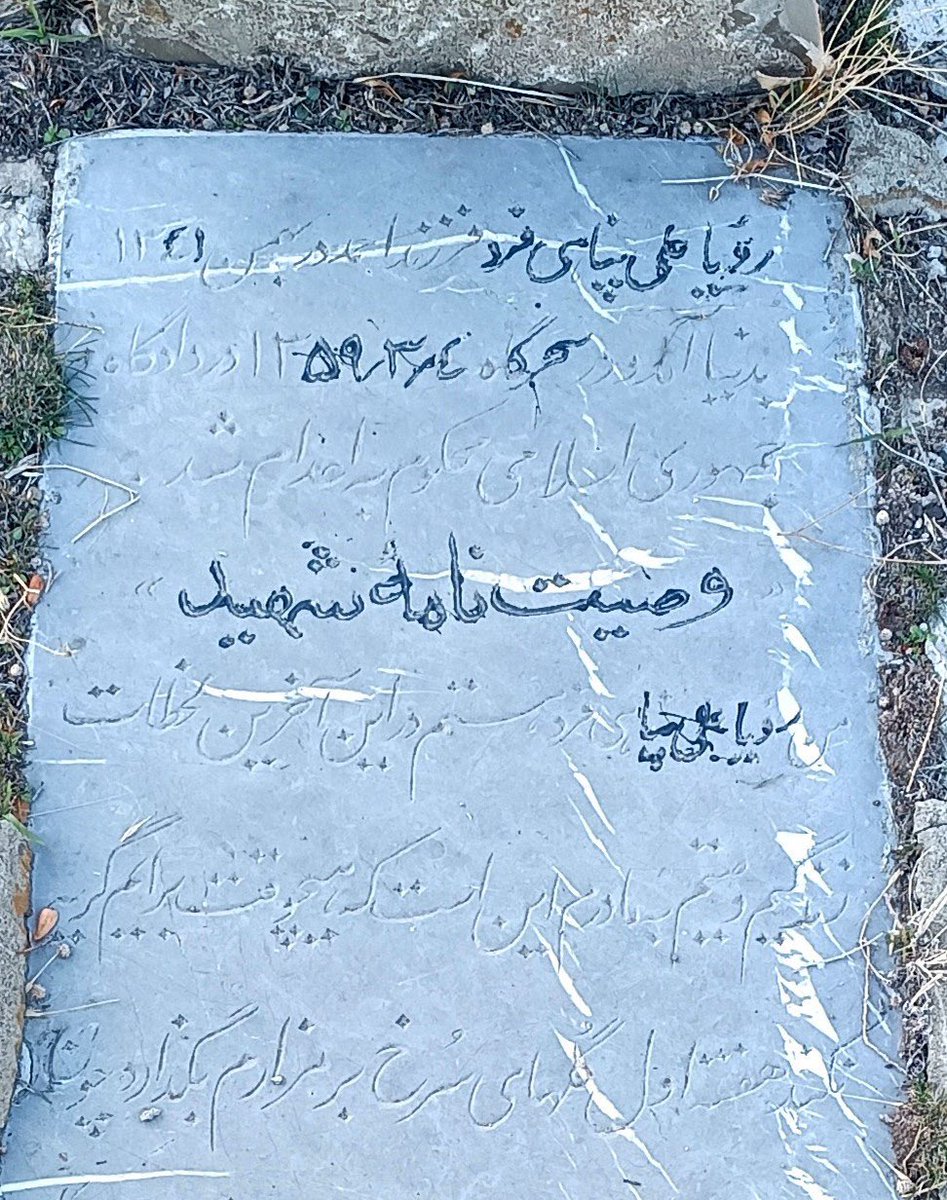 رؤیا علی پناهی فرد فرزند احمد در بهمن ۱۳۴۱
بدنیا آمد و در سحرگاه ۱۳۵۹/۳/۴ در دادگاه
جمهوری اسلامی محکوم به اعدام شد
« وصیت نامهٔ شهید »
من رویا علی پنا هی فرد هستم در این آخرین لحظات
زندگیم وصیتم به مادرم این است که هیچوقت برایم گریه
نکند هفته اول گلهای سرخ بر مزارم بگذارد چون